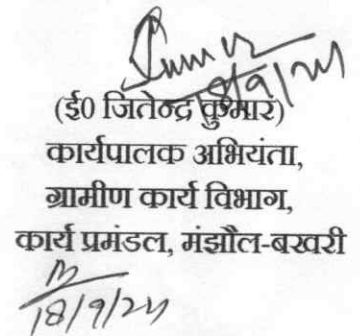 18/9/24
(ई0 जितेन्द्र कुमार)
कार्यपालक अभियंता,
ग्रामीण कार्य विभाग,
कार्य प्रमंडल, मंझौल-बखरी
18/9/24